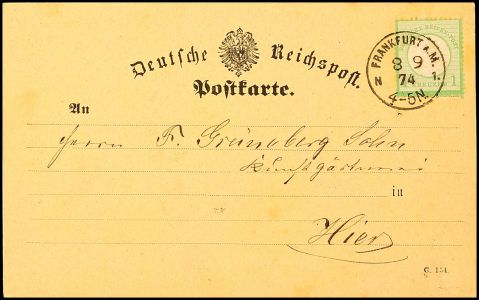 Deutsche Reichspost.
Postkarte.
FRANKFURT A.M.
8 9
74 1.
N
4-5N.
1
An
Herrn F. Grüneberg Sohn
Kunstgärtnerei
in
Hier
G. 154.